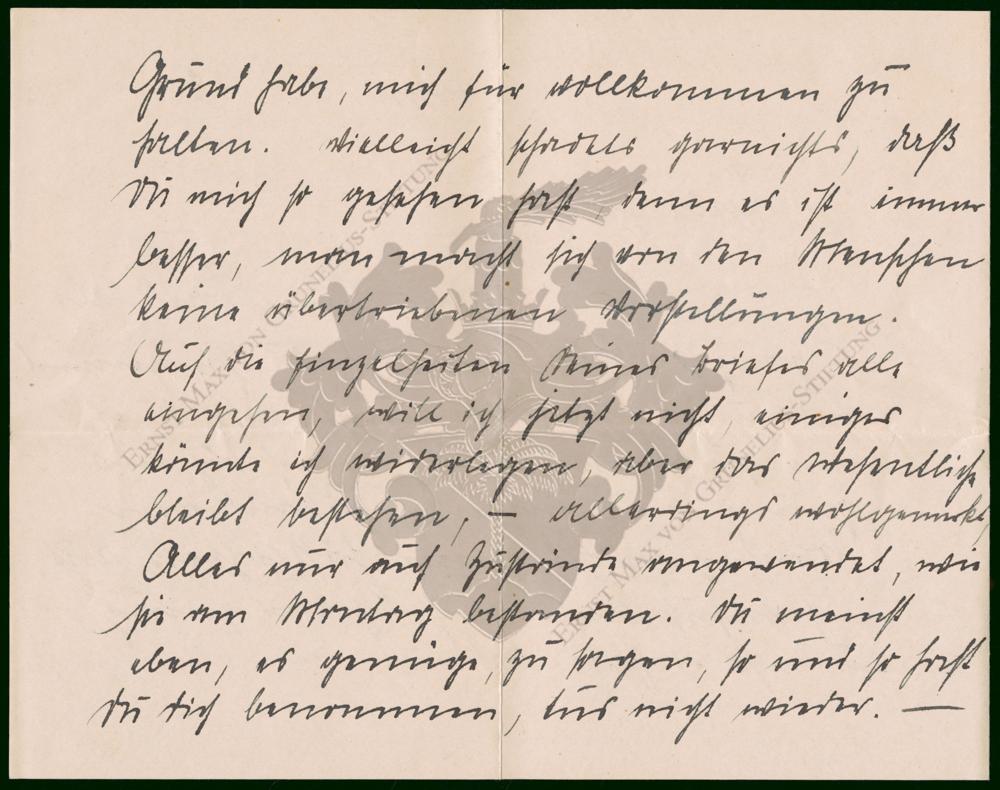 Grund habe, mich für vollkommen zu
halten. Vielleicht schadets garnichts, daß
Du mich so gesehen hast, denn es ist immer
besser, man macht sich von den Menschen
keine übertriebenen Vorstellungen.
Auf die Einzelheiten Deines Briefes alle
eingehen, will ich jetzt nicht, einiges
könnte ich widerlegen, aber das Wesentliche
bleibt bestehen, — allerdings wohlgemerkt,
Alles nur auf Zustände angewendet, wie
sie am Montag bestanden. Du meinst
eben, es genüge, zu sagen, so und so hast
Du dich benommen, tus nicht wieder. —
ERNST MAX VON GRUNELIUS-STIFTUNG
ERNST MAX VON GRUNELIUS-STIFTUNG